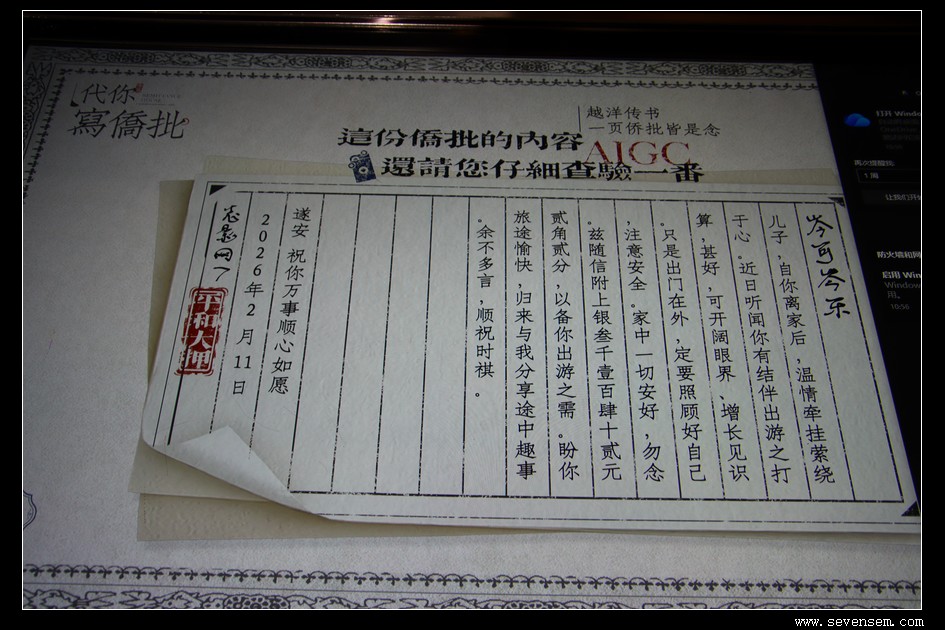 代你
寫僑批
越洋传书
一页侨批皆是念
這份僑批的內容
AIGC
還請您仔細查驗一番
儿子，自你离家后，温情牵挂萦绕
于心。近日听闻你有结伴出游之打
算，甚好，可开阔眼界、增长见识
。只是出门在外，定要照顾好自己
，注意安全。家中一切安好，勿念
。兹随信附上银叁千壹百肆十贰元
贰角贰分，以备你出游之需。盼你
旅途愉快，归来与我分享途中趣事
。余不多言，顺祝时祺。
遂安 祝你万事顺心如愿
2026年2月11日
平和大押
打开 Windo
1 周
让我们开始
防火墙和网
启用 Win
Window
用。
10:56
www.sevensem.com